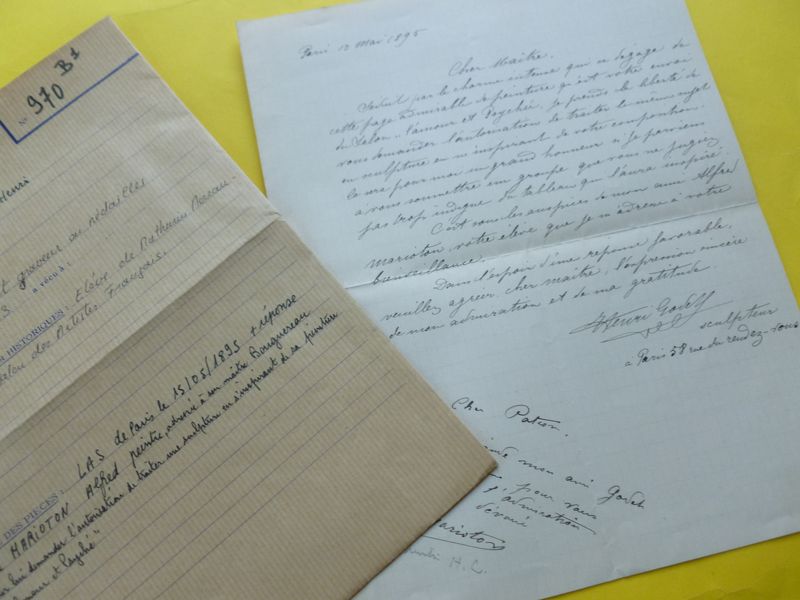 N° 970 B1
Henri
et graveur en médailles
a vécu à :
HISTORIQUES : Elève de Mathurin Moreau.
Salon des Artistes Français.
DES PIÈCES : LAS de Paris le 15/05/1895 + réponse
MARIOTON Alfred peintre, adressée à son maître Bouguereau
pour lui demander l'autorisation de traiter une sculpture en s'inspirant de sa peinture
"Amour et Psyché"
Paris 12 Mai 1895
Cher Maître.
Séduit par le charme intense qui se dégage de
cette page admirable de peinture qu'est votre envoi
du Salon "l'amour et Psychée, je prends la liberté de
vous demander l'autorisation de traiter le même sujet
en sculpture en m'inspirant de votre composition.
Ce sera pour moi un grand honneur si je parviens
à vous soumettre un groupe que vous ne jugiez
pas trop indigne du tableau qui l'aura inspiré.
C'est sous les auspices de mon ami Alfred
Marioton, votre élève que je m'adresse à votre
bienveillance.
Dans l'espoir d'une réponse favorable,
veuillez agréer, cher maître, l'expression sincère
de mon admiration et de ma gratitude
Henri Godet
sculpteur
à Paris 58 rue du rendez-vous
Cher Patron.
mon ami Godet
pour vous
l'admiration
dévoué
Marioton
H. C.